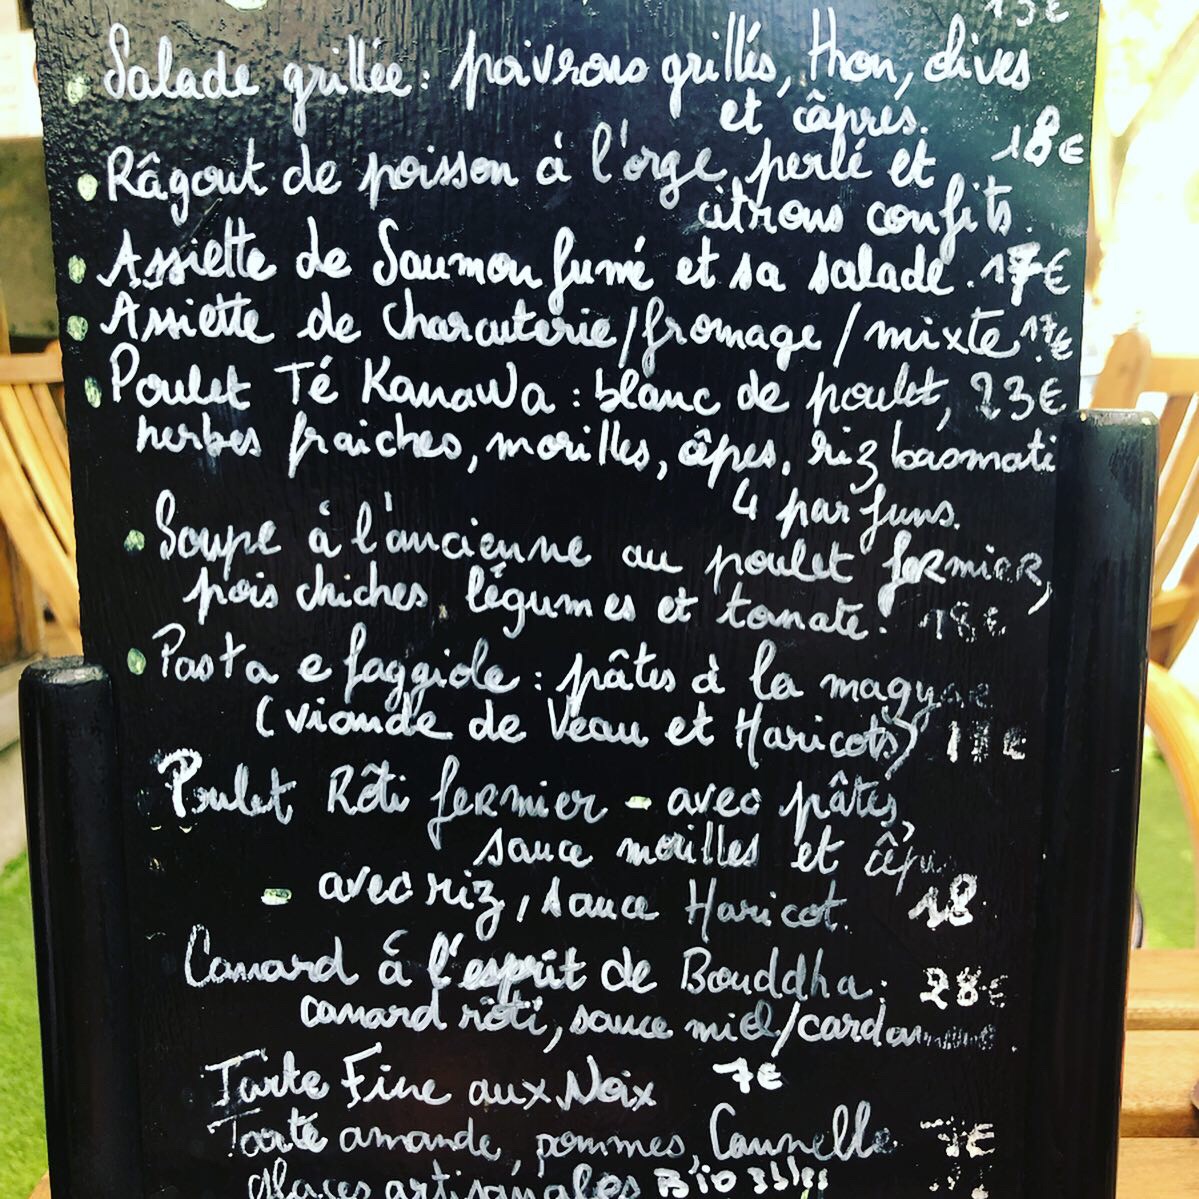 13€
Salade grillée : poivrons grillés, thon, olives
et câpres.
Râgout de poisson à l'orge perlé et 18€
citrons confits.
Assiette de Saumon fumé et sa salade. 17€
Assiette de charcuterie/fromage/mixte. 17€
Poulet Té Kanawa : blanc de poulet, 23€
herbes fraiches, morilles, cêpes, riz basmati
4 parfums.
Soupe à l'ancienne au poulet fermier,
pois chiches, légumes et tomate. 18€
Pasta e faggiole : pâtes à la
(viande de Veau et Haricots)
Poulet Rôti fermier - avec pâtes,
sauce morilles et
- avec riz, sauce Haricot. 18
Canard á l'esprit de Bouddha : 28€
canard rôti, sauce miel/cardamome.
Tarte Fine aux Noix 7€
Tarte amande, pommes, Cannelle 7€
glaces artisanales Bio